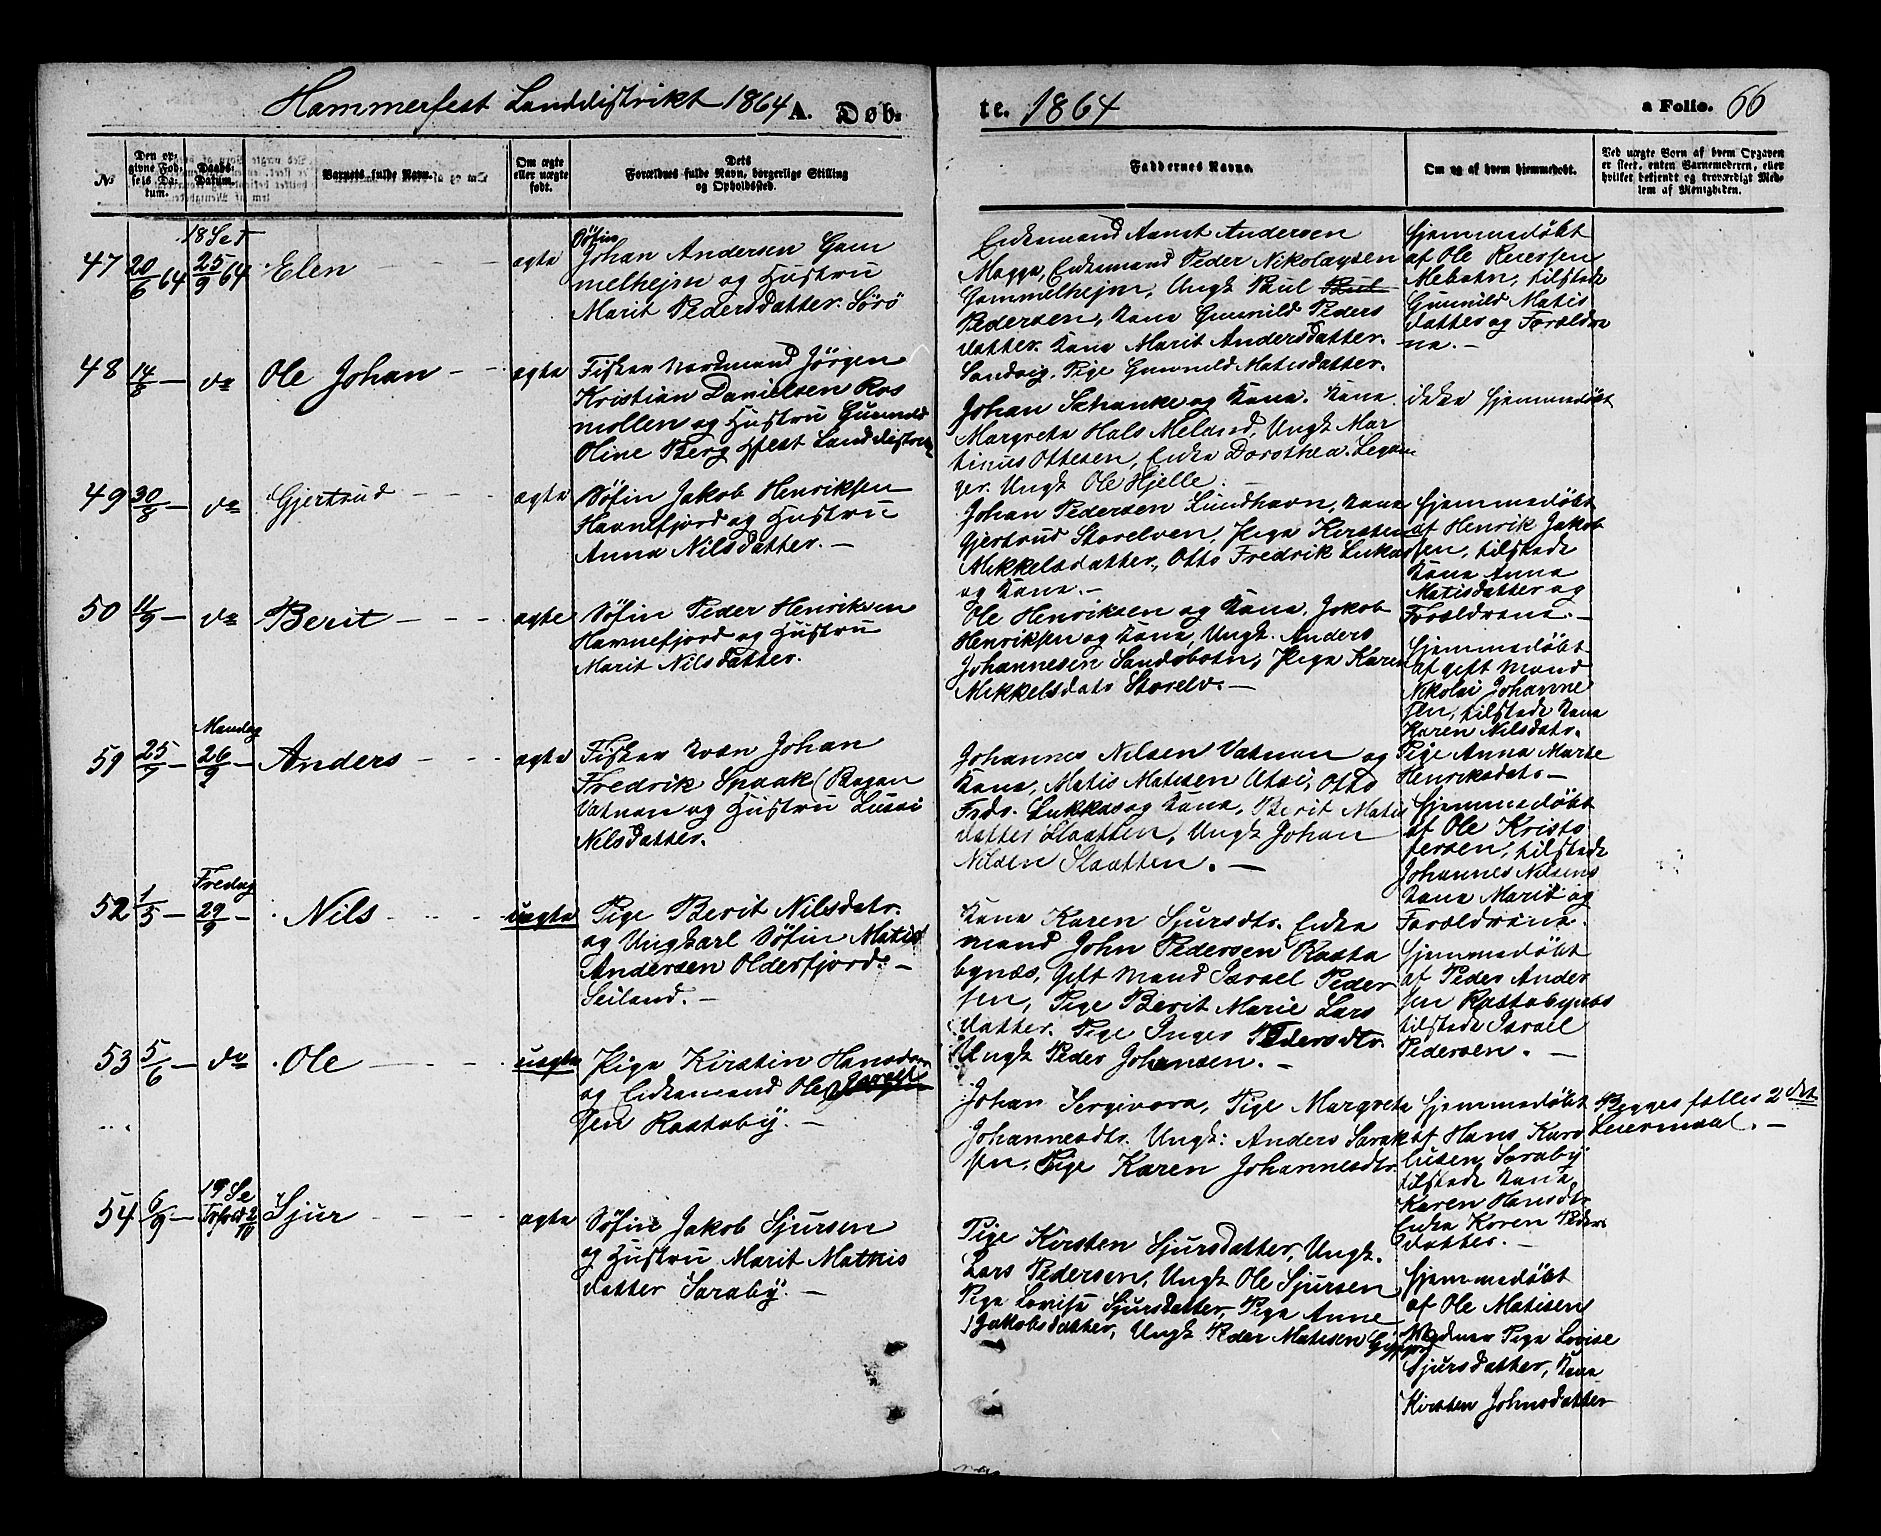 Hammerfest Landdistrikt 1864 A. Døb=
te. 1864
a Folio. 66
No
Den op=
givne Fød=
sels Da=
tum.
Daabs=
Datum.
Barnets fulde Navn.
Om ægte
eller uægte
født.
Dets
Forældres fulde Navn, borgerlige Stilling
og Opholdssted.
Faddernes Navne.
Om og af hvem hjemmedøbt.
Ved uægte Børn af hvem Opgaven
er skeet, enten Barnemoderen, eller
hvilket bekjendt og troværdigt Med=
lem af Menigheden.
47 20/6 64
18 Set
25/9 64
Elen
ægte
Søfin
Johan Andersen Gam
melhejm og Hustru
Marit Pedersdatter Sørø
Enkemand Aanet Andersen
Magga, Enkemand Peder Nikolaysen
Gammelhejm, Ungk Paul Paul
Pedersen, Kone Gunnild Peders
datter. Kone Marit Andersdatter.
Sandvig. Pige Gunnild Matisdatter.
Hjemmedøbt
af Ole Reiersen
Mebotn, tilstede
Gunnild Matis
datter og Forældre
ne. -
48 14/8 -
do
Ole Johan
ægte
Fisker Nordmand Jørgen
Kristian Danielsen Ros
mollen og Hustru Gunnild
Oline Berg Hfest Landdistrikt
Johan Schanke og Kone. Kone
Margrete Hals Meland, Ungk Mar
tinus Ottesen, Enke Dorothea
Ungk Ole Hjelle.
ikke hjemmedøbt
49 30/8 -
do
Gjertrud
ægte
Søfin Jakob Henriksen
Havnefjord og Hustru
Anna Nilsdatter. -
Johan Pedersen Lundhavn, Kone
Gjertrud Storelven, Pige Kirsten
Mikkelsdatter, Otto Fredrik Lukas
og Kone. -
Hjemmedøbt
af Henrik Jakob
sen, tilstede
Kone Anna
Matisdatter og
Forældrene. -
50 11/9 -
do
Berit
ægte
Søfin Peder Henriksen
Havnefjord og Hustru
Marit Nilsdatter.
Ole Henriksen og Kone, Jakob
Henriksen og Kone, Ungk. Anders
Johannesen Sandøbotn, Pige Karen
Mikkelsdatr Storelv. -
Hjemmedøbt
af gift Mand
Nikolai Johanne
sen, tilstede Kone
Karen Nilsdatr.
Pige Anna Marte
Henriksdatr -
59 25/7 -
Mandag
26/9 -
Anders
ægte
Fisker Kvæn Johan
Fredrik Spaak (Bagan
Vatnan og Hustru Lussi
Nilsdatter.
Johannes Nilsen Vatnan og
Kone, Matis Matisen Utsi, Otto
Fredr. Lukkas og Kone, Berit Matis
datter Slaatten, Ungk Johan
Nilsen Slaatten. -
Hjemmedøbt
af Ole Kristo
fersen, tilstede
Johannes Nilsens
Kone Marit og
Forældrene.
52 1/5 -
Fredag
29/9 -
Nils
uægte
Pige Berit Nilsdatr.
og Ungkarl Søfin Matis
Andersen Olderfjord -
Seiland. -
Kone Karen Sjursdtr. Enke
mand John Pedersen Rasta
bynæs, Gift Mand Israel Peder
sen, Pige Berit Marie Lars
datter. Pige Inger Pedersdtr.
Ungk Peder Johansen. -
Hjemmedøbt
af Peder Ander
sen Rastabynæs
tilstede Israel
Pedersen. -
53 5/6 -
do
Ole
uægte
Pige Kirstin Hansdtr
og Enkemand Ole
sen Rastaby. -
Johan Sergivara, Pige Margrete
Johannesdtr. Ungk: Anders Israk
sen, Pige Karen Johannesdtr.
Hjemmedøbt
af Hans Karo
lusen Saraby
tilstede Kone
Karen Hansdtr
Enke Karen Peder
datter. -
Begges fælles 2det
Leiermaal. -
54 6/9 -
19 Se
2/10
Sjur
ægte
Søfin Jakob Sjursen
og Hustru Marit Mathis
datter Saraby. -
Pige Kirsten Sjursdatter, Ungk.
Lars Pedersen, Ungk Ole Sjursen
Pige Lovise Sjursdatter, Pige Anne
Jakobsdatter, Ungk Peder Matisen
Hjemmedøbt
af Ole Matisen
Pige Lovise
Sjursdatter, Kone
Kirsten Johnsdatter